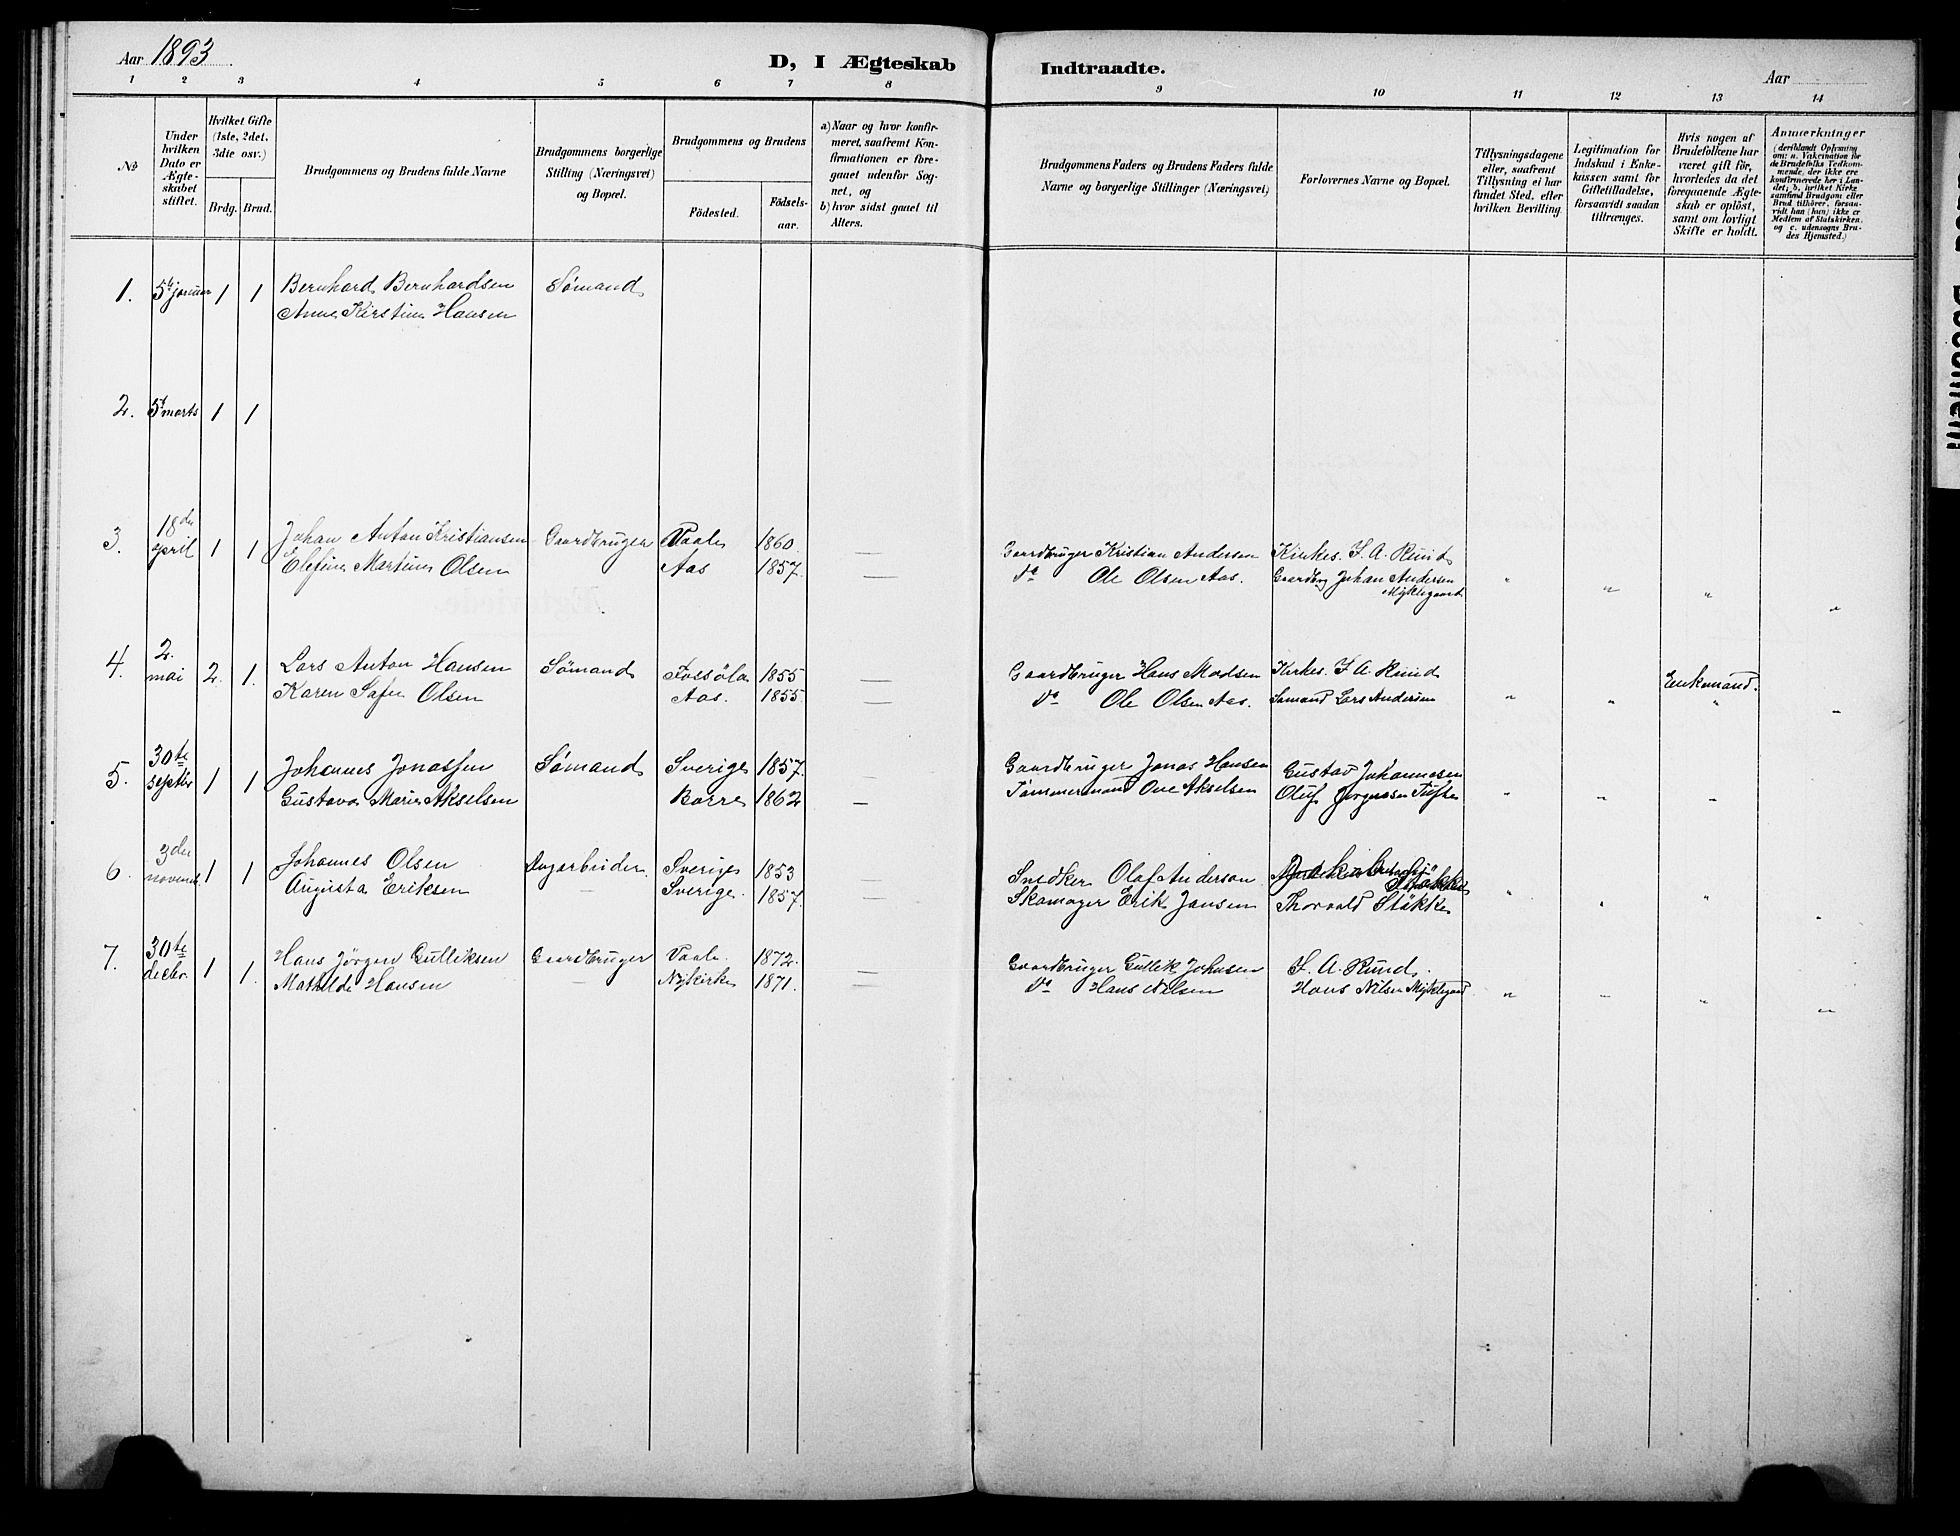 Aar 1893
D, I Ægteskab Indtraadte.
Aar
1 2 3 4 5 6 7 8 9 10 11 12 13 14
№
Under hvilken Dato er Ægteskabet stiftet.
Hvilket Gifte (1ste, 2det, 3dte osv.)
Brdg. Brud.
Brudgommens og Brudens fulde Navne
Brudgommens borgerlige Stilling (Næringsvei) og Bopæl.
Brudgommens og Brudens
Födested.
Födselsaar.
a) Naar og hvor konfirmeret, saafremt Konfirmationen er foregaaet udenfor Sognet, og
b) hvor sidst gaaet til Alters.
Brudgommens Faders og Brudens Faders fulde Navne og borgerlige Stillinger (Næringsvei)
Forlovernes Navne og Bopæl.
Tillysningsdagene eller, saafremt Tillysning ei har fundet Sted, efter hvilken Bevilling.
Legitimation for Indskud i Enkekassen samt for Giftetilladelse, forsaavidt saadan tiltrænges.
Hvis nogen af Brudefolkene har været gift för, hvorledes da det foregaaende Ægteskab er oplöst, samt om lovligt Skifte er holdt.
Anmærkninger
(deriblandt Oplysning om: a. Vakcination for de Brudefolks Vedkommende, der ikke ere konfirmerede her i Landet; b. hvilket Kirkesamfund Brudgom eller Brud tilhörer, forsaavidt han (hun) ikke er Medlem af Statskirken, og c. udensogns Brudes Hjemsted.)
1. 5te januar 1 1 Bernhard Bernhardsen Sømand
Anne Kirstine Hansen
2. 5te marts 1 1
3. 18de april 1 1 Johan Anton Kristiansen Gaardbruger Vaale 1860 — Gaardbruger Kristian Andersen Kirkes. F. A. Ruud
Elefine Martine Olsen Aas 1857. — Do Ole Olsen Aas. Gaardbrg Johan Andersen Myklegaard " " " "
4. 2. mai 2. 1. Lars Anton Hansen Sømand Fossøla 1855 — Gaardbruger Hans Madsen Kirkes. F. A. Ruud Enkemand.
Karen Sofie Olsen Aas. 1855. — Do Ole Olsen Aas. Sømand Lars Andersen " " " "
5. 30te septbr 1 1 Johannes Jonassen Sømand Sverige 1857. Gaardbruger Jonas Hansen Gustav Johannesen
Gustava Marie Akselsen Borre 1862 — Tømmermand Ove Akselsen Oluf Jørgensen Tufte " " "
6. 3de novemb. 1 1 Johannes Olsen Dagarbeider. Sverige 1853 Snedker Olaf Anderson Støkke
Augusta Eriksen — Sverige. 1857. — Skomager Erik Jansen Thorvald Støkke " " " "
7. 30te decbr. 1 1. Hans Jørgen Gulliksen Gaardbruger Vaale. 1872. — Gaardbruger Gullik Johnsen F. A. Ruud.
Mathilde Hansen — Nykirke 1871. — Do Hans Nilsen Hans Nilsen Myklegaard " " " "